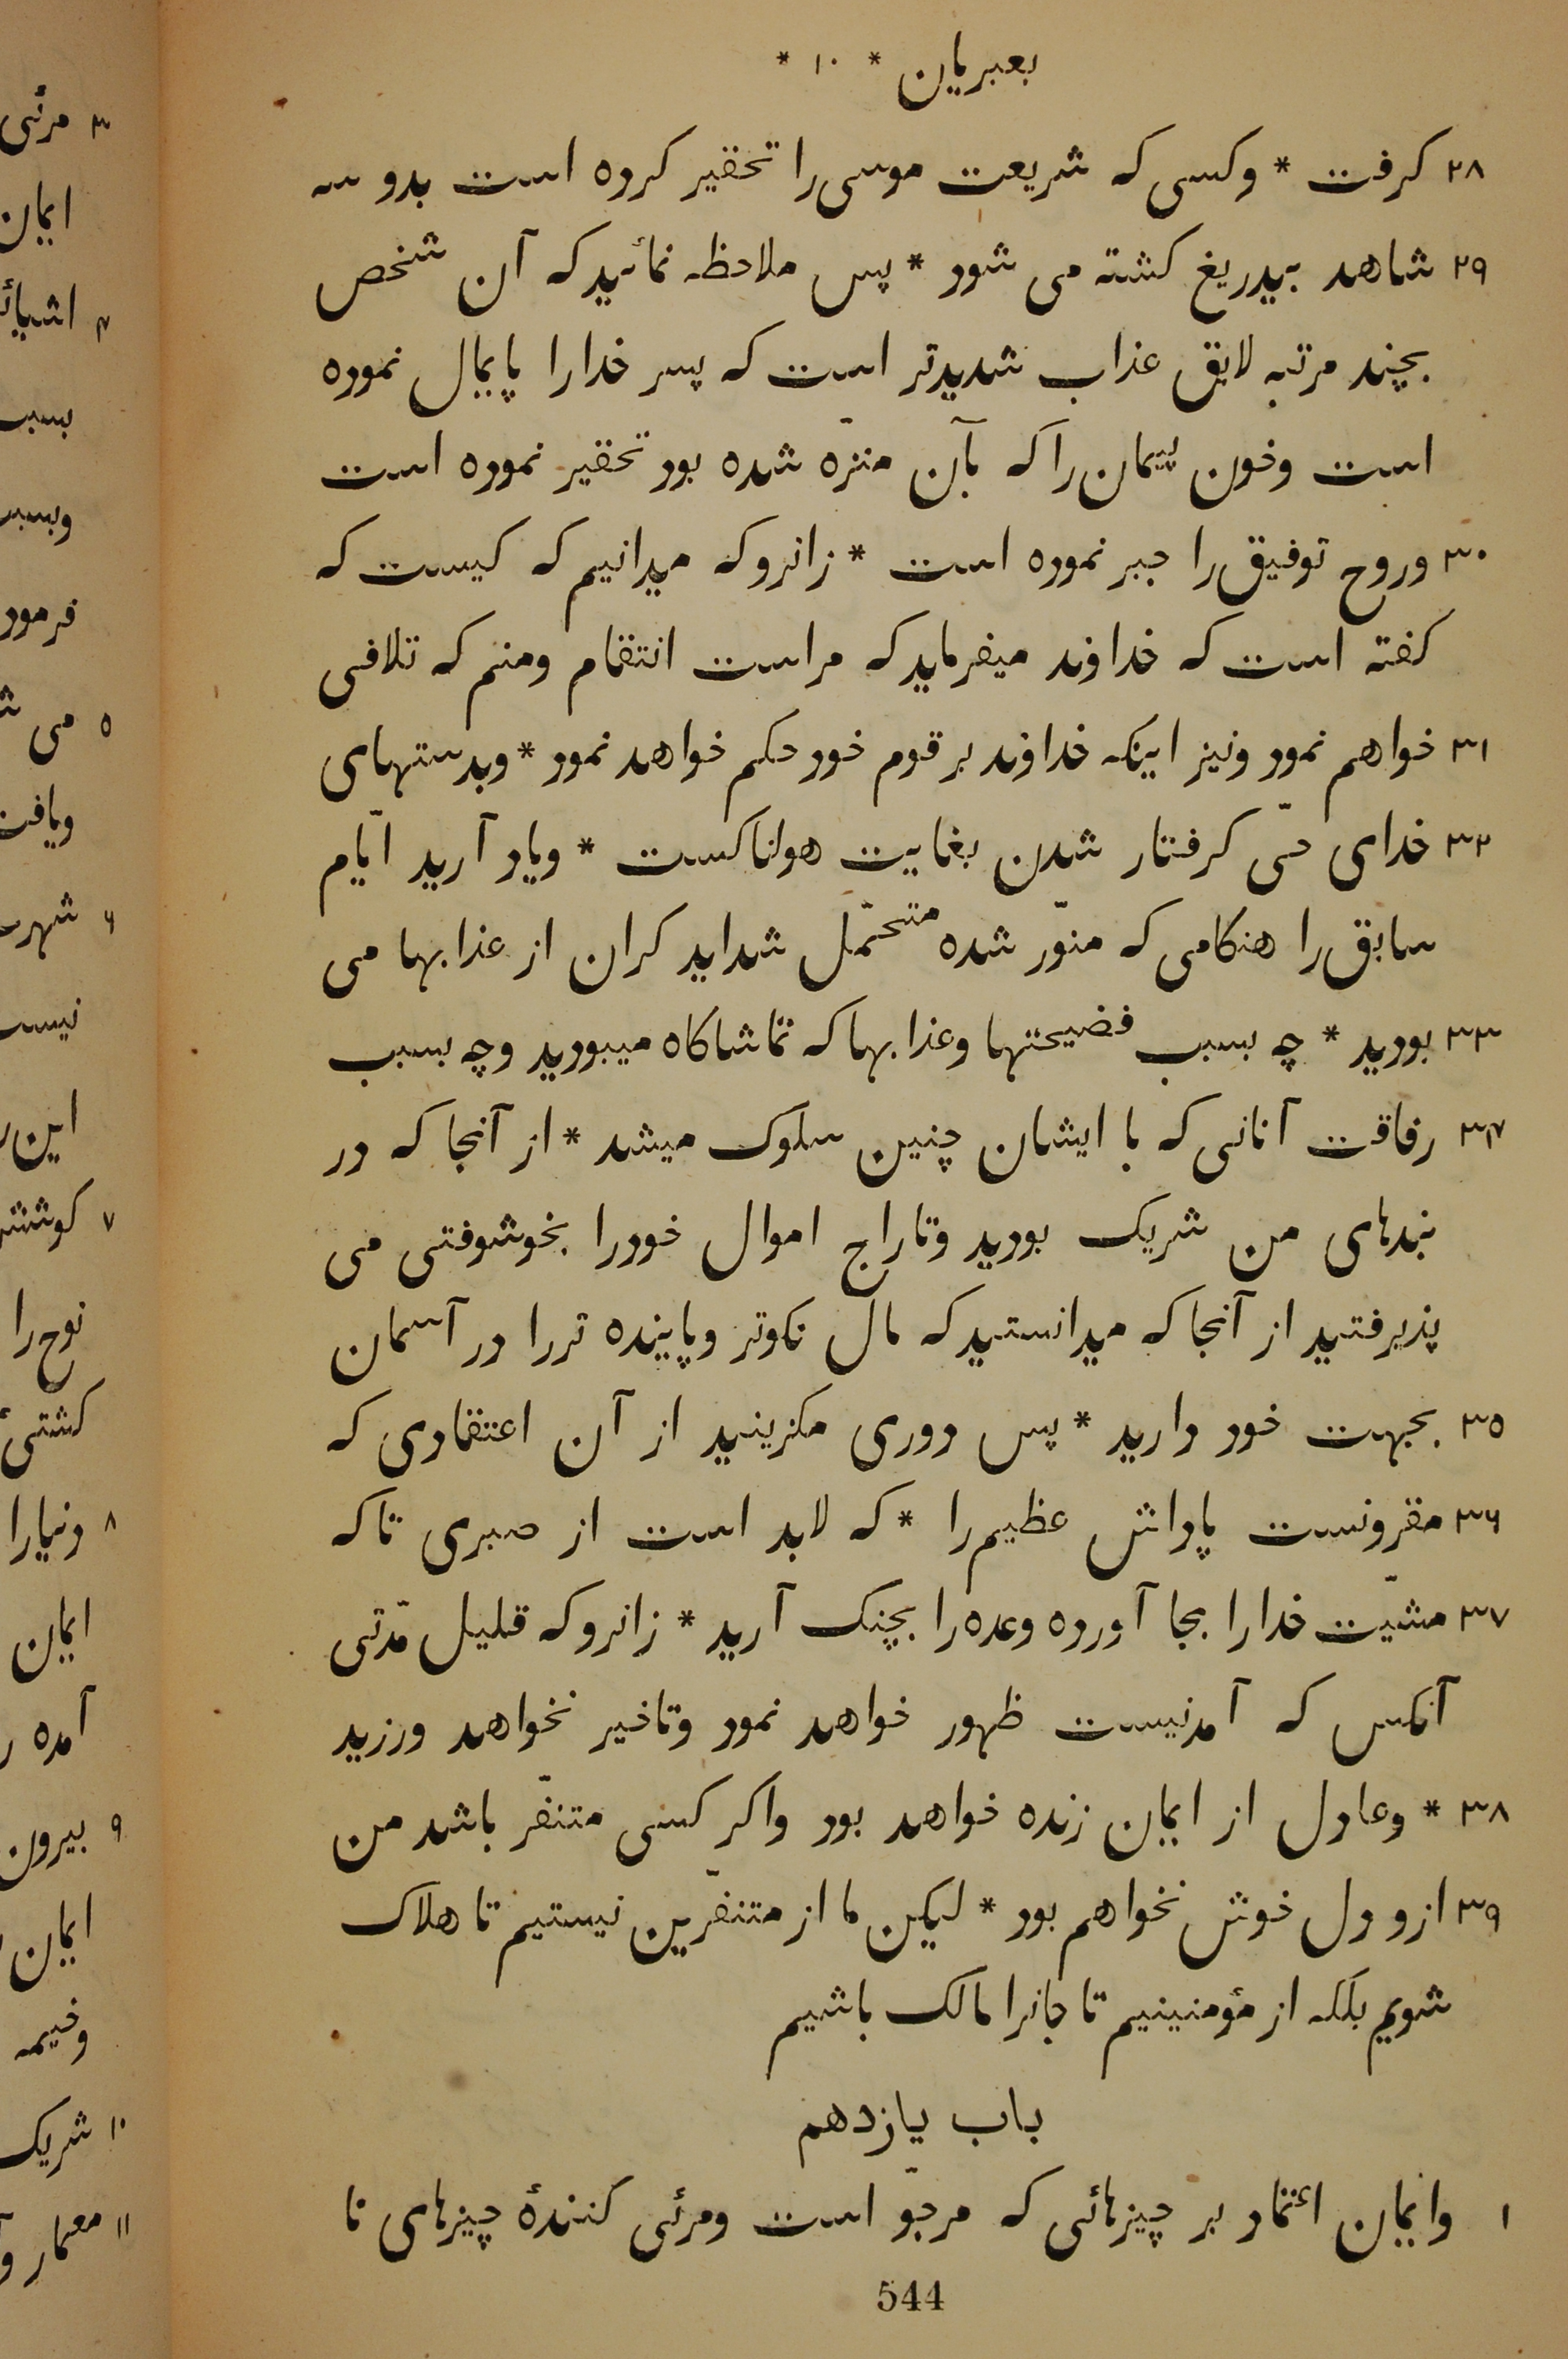 بعبریان * ۱۰ *
۲۸ کرفت * وکسی که شریعت موسی را تحقیر کرده است بدو سه
۲۹ شاهد بیدریغ کشته می شود * پس ملاحظه نمائید که آن شخص
بچند مرتبه لایق عذاب شدیدتر است که پسر خدارا پایمال نموده
است وخون پیمان را که بآن منزّه شده بود تحقیر نموده است
۳۰ وروح توفیق را جبر نموده است * زانرو که میدانیم که کیست که
کفته است که خداوند میفرماید که مراست انتقام ومنم که تلافی
۳۱ خواهم نمود ونیز اینکه خداوند بر قوم خود حکم خواهد نمود * وبدستهای
۳۲ خدای حّی کرفتار شدن بغایت هولناکست * ویاد آرید ایّام
سابق را هنکامی که منوّر شده متحمّل شداید کران از عذابها می
۳۳ بودید * چه بسبب فضیحتها وعذابها که تماشاکاه میبودید وچه بسبب
۳۴ رفاقت آنانی که با ایشان چنین سلوک میشد * از آنجا که در
بندهای من شریک بودید وتاراج اموال خودرا بخوشوقتی می
پذیرفتید از آنجا که میدانستید که مال نکوتر وپاینده تررا در آسمان
۳۵ بجهت خود دارید * پس دوری مکزینید از آن اعتقادی که
۳۶ مقرونست پاداش عظیم را * که لابد است از صبری تا که
۳۷ مشیّت خدارا بجا آورده وعده را بچنک آرید * زانرو که قلیل مّدتی
آنکس که آمدنیست ظهور خواهد نمود وتاخیر نخواهد ورزید
۳۸ * وعادل از ایمان زنده خواهد بود واکر کسی متنفّر باشد من
۳۹ ازو دل خوش نخواهم بود * لیکن ما از متنفّرین نیستیم تا هلاک
شویم بلکه از مؤمنینیم تا جانرا مالک باشیم
باب یازدهم
۱ وایمان ائتماد بر چیزهائی که مرجوّ است ومرئی کنندهٔ چیزهای نا
544
۳ مرئی
ایمان
۴
بسبب
وبسبب
فرمود
۵ می
۶
این
۷
نوح را
کشتی
۸ دنیارا
ایمان
آمده
۹ بیرون
ایمان
وخیمه
۱۰ شریک
۱۱ معمار